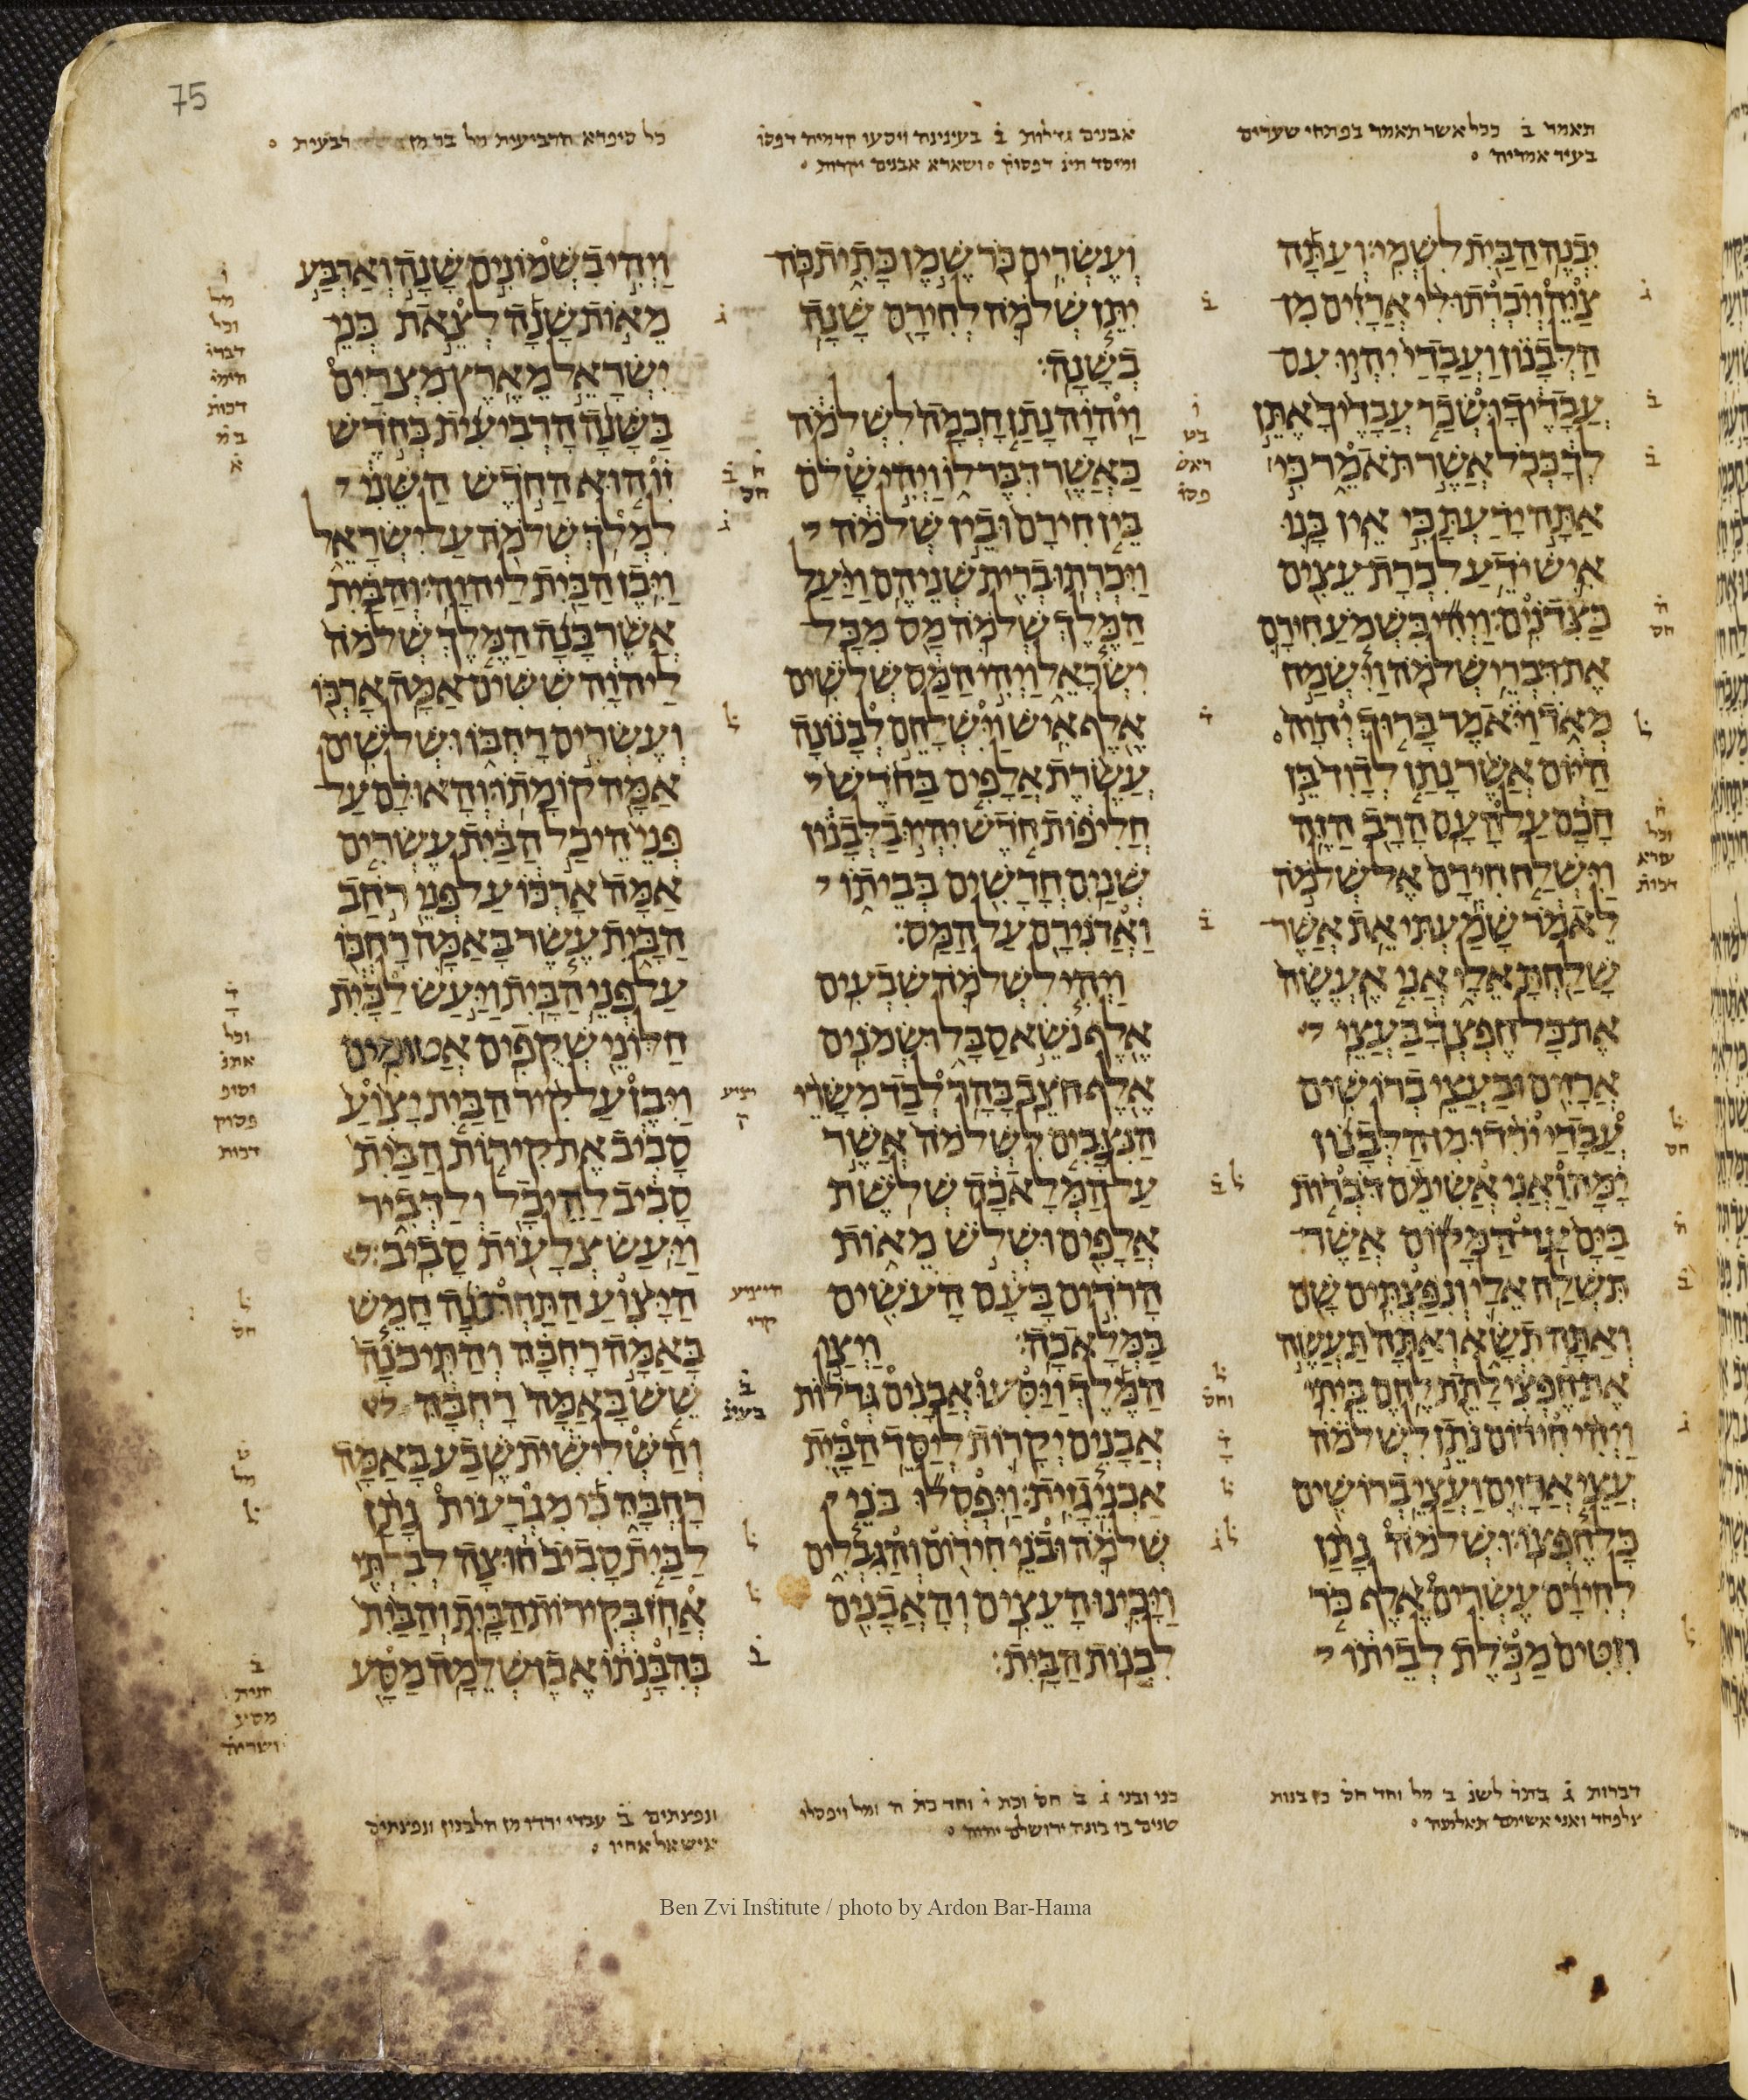 75
תאמר ב ככל אשר תאמר בפתחי שערים
בעיר אמריה
אבנים גדלות ב בעינינה ויסעו קדמיה דפסו
ומיסד תינ דפסוק ושארא אבנים יקרות
כל סיפרא הרביעית מל בר מן רבעית
יבנה הבית לשמי ועתה
צוה ויכרתו לי ארזים מן
הלבנון ועבדי יהיו עם
עבדיך ושכר עבדיך אתן
לך ככל אשר תאמר כי
אתה ידעת כי אין בנו
איש ידע לכרת עצים
כצדנים ויהי כשמע חירם
את דברי שלמה וישמח
מאד ויאמר ברוך יהוה
היום אשר נתן לדוד בן
חכם על העם הרב הזה
וישלח חירם אל שלמה
לאמר שמעתי את אשר
שלחת אלי אני אעשה
את כל חפצך בעצי
ארזים ובעצי ברושים
עבדי ירדו מן הלבנון
ימה ואני אשימם דברות
בים עד המקום אשר
תשלח אלי ונפצתים שם
ואתה תשא ואתה תעשה
את חפצי לתת לחם ביתי
ויהי חירום נתן לשלמה
עצי ארזים ועצי ברושים
כל חפצו ושלמה נתן
לחירם עשרים אלף כר
חטים מכלת לביתו
ועשרים כר שמן כתית כה
יתן שלמה לחירם שנה
בשנה
ויהוה נתן חכמה לשלמה
כאשר דבר לו ויהי שלם
בין חירם ובין שלמה
ויכרתו ברית שניהם ויעל
המלך שלמה מס מכל
ישראל ויהי המס שלשים
אלף איש וישלחם לבנונה
עשרת אלפים בחדש
חליפות חדש יהיו בלבנון
שנים חדשים בביתו
ואדנירם על המס
ויהי לשלמה שבעים
אלף נשא סבל ושמנים
אלף חצב בהר לבד משרי
הנצבים לשלמה אשר
על המלאכה שלשת
אלפים ושלש מאות
הרדים בעם העשים
במלאכה ויצו
המלך ויסעו אבנים גדלות
אבנים יקרות ליסד הבית
אבני גזית ויפסלו בני
שלמה ובני חירום והגבלים
ויכינו העצים והאבנים
לבנות הבית
ויהי בשמונים שנה וארבע
מאות שנה לצאת בני
ישראל מארץ מצרים
בשנה הרביעית בחדש
זו הוא החדש השני
למלך שלמה על ישראל
ויבן הבית ליהוה והבית
אשר בנה המלך שלמה
ליהוה ששים אמה ארכו
ועשרים רחבו ושלשים
אמה קומתו והאולם על
פני היכל הבית עשרים
אמה ארכו על פני רחב
הבית עשר באמה רחבו
על פני הבית ויעש לבית
חלוני שקפים אטומים
ויבן על קיר הבית יצוע
סביב את קירות הבית
סביב להיכל ולדביר
ויעש צלעות סביב
היצוע התחתנה חמש
באמה רחבה והתיכנה
שש באמה רחבה
והשלישית שבע באמה
רחבה כי מגרעות נתן
לבית סביב חוצה לבלתי
אחז בקירות הבית והבית
בהבנתו אבן שלמה מסע
דברות ג בתר לשנ ב מל וחד חס כן בנות
צלפחד ואני אשימם
בני ובני ג ב חס וכת י וחד כת ה ומל ויפסלו
בונה ירושלם יהוה
ונפצתים ב עבדי ירדו מן הלבנון ונפצתים
איש אל אחיו
Ben Zvi Institute / photo by Ardon Bar-Hama